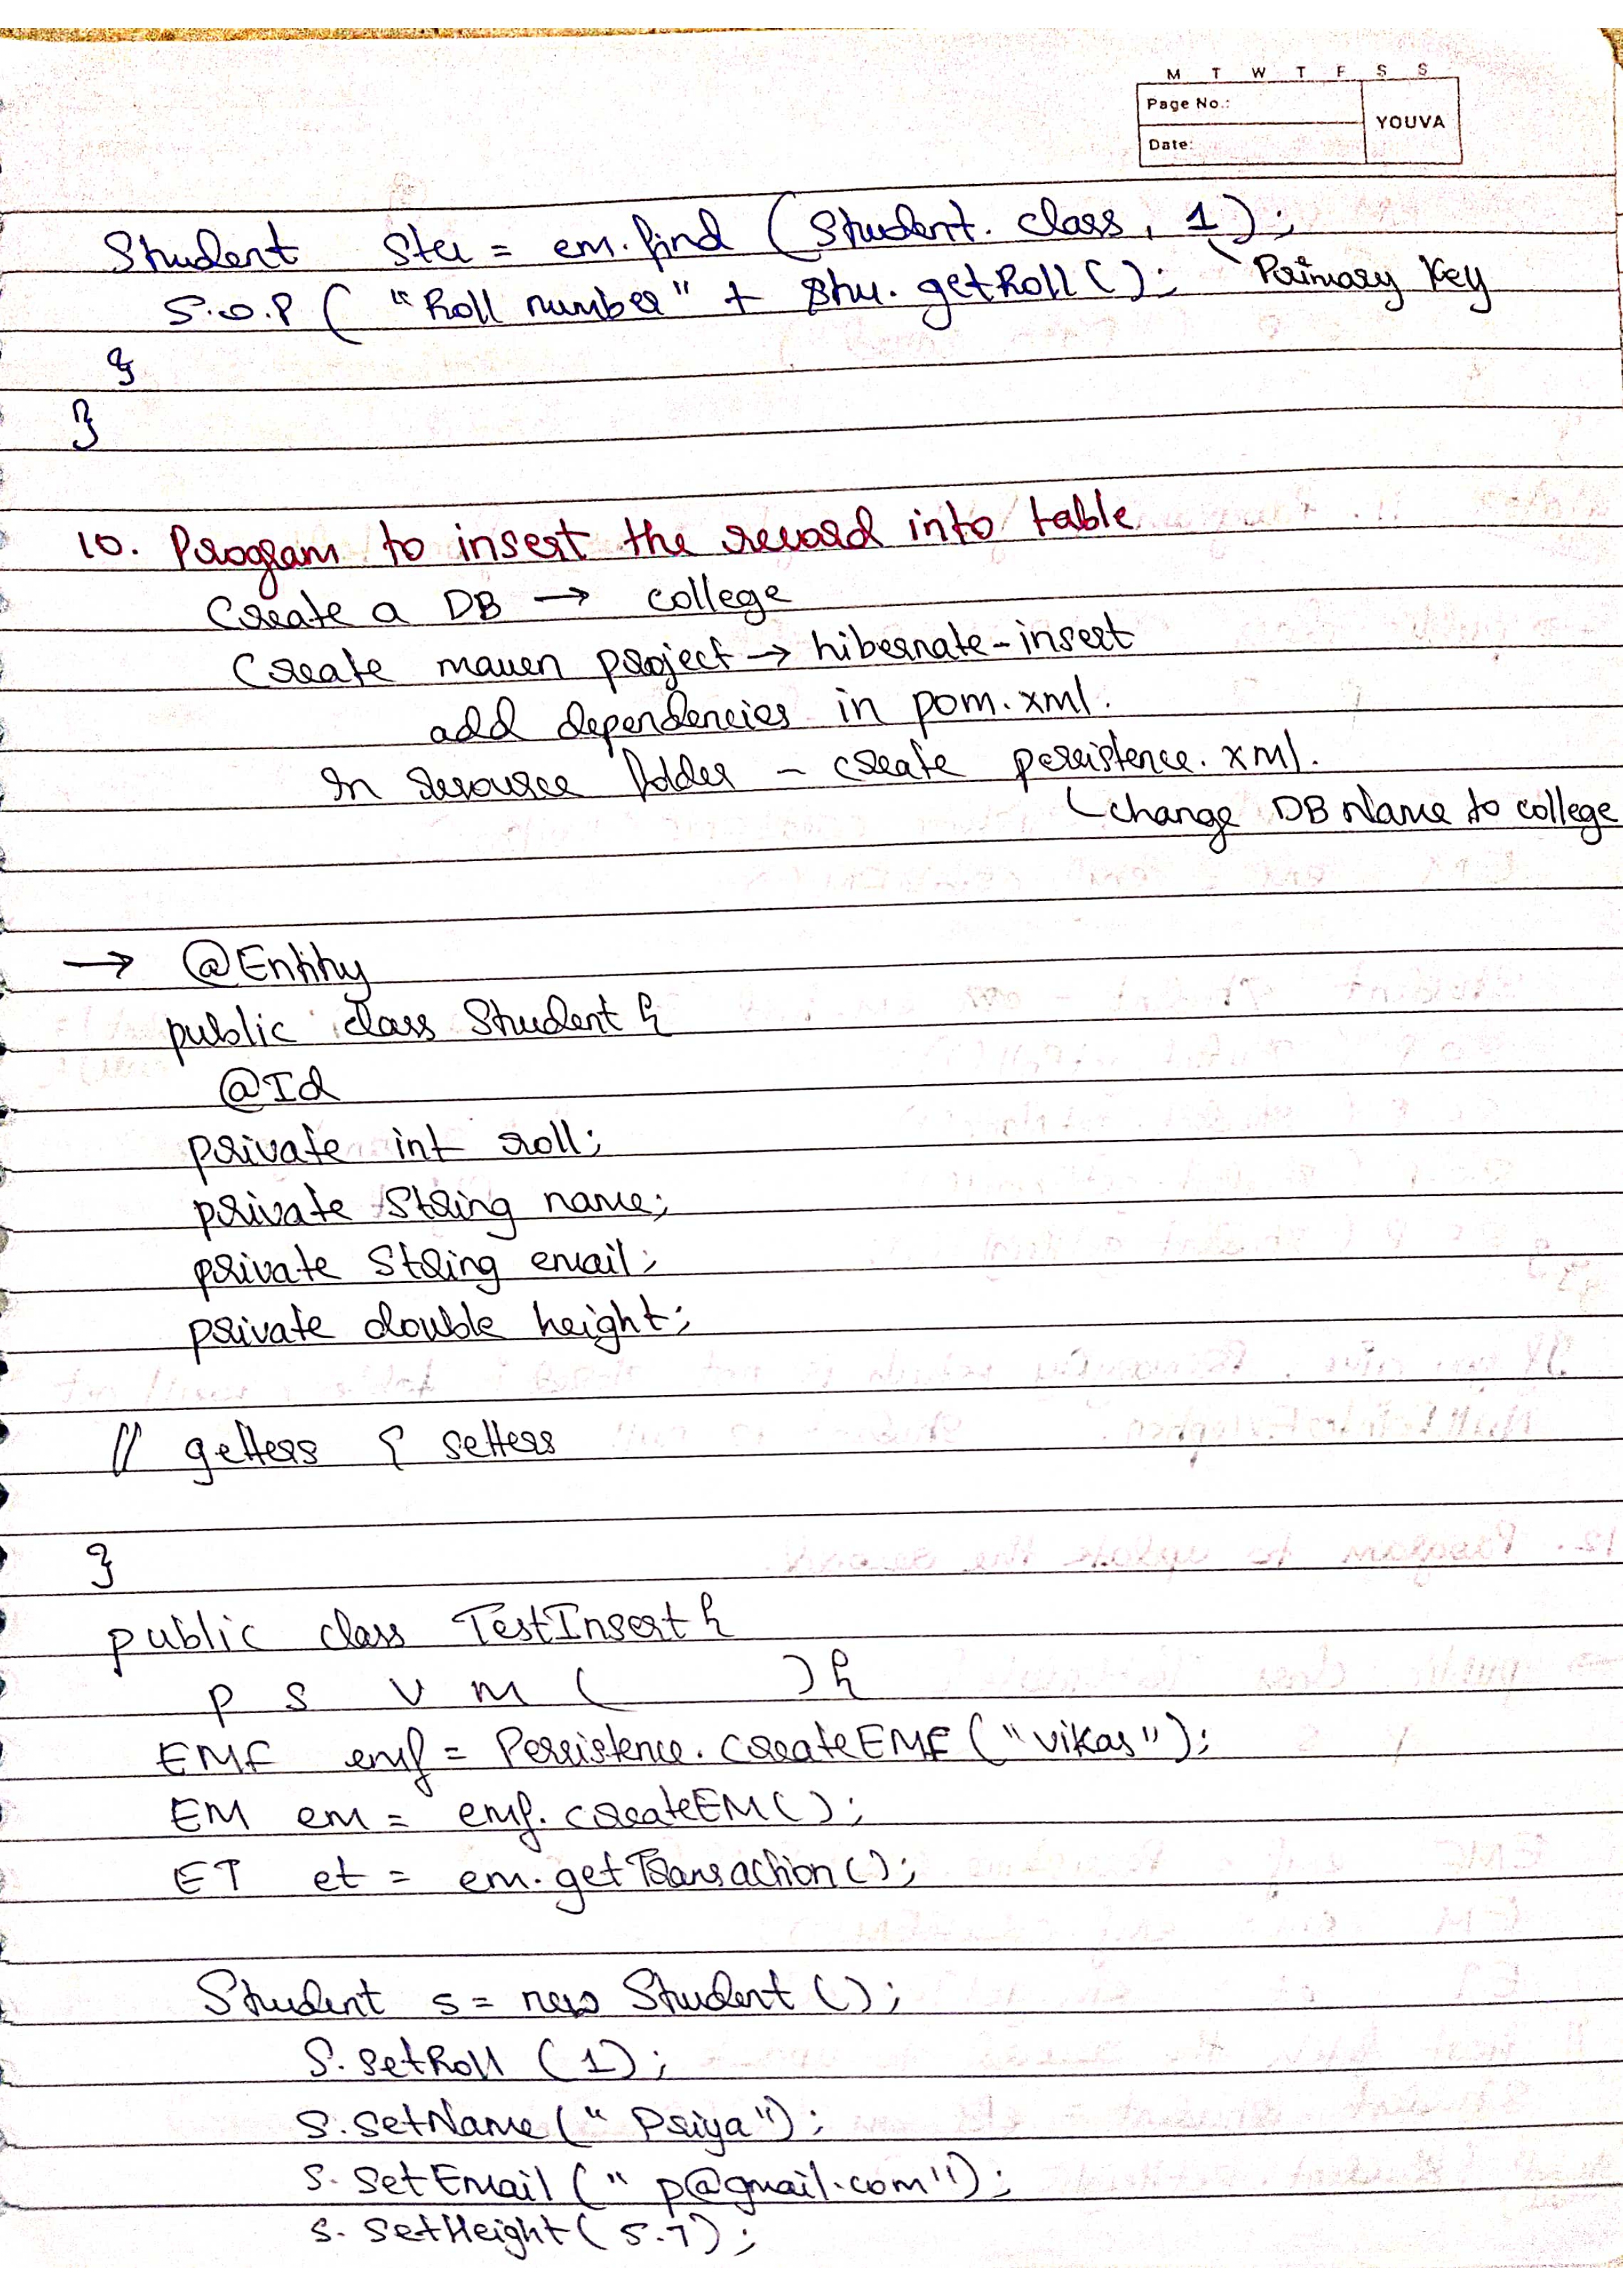 M T W T F S S
Page No.:
YOUVA
Date:
Student stu = em.find (Student.class, 1);
Primary Key
S.O.P ( "Roll number" + stu.getRoll();
}
}
10. Program to insert the record into table
Create a DB → college
Create maven project → hibernate-insert
add dependencies in pom.xml.
In resource folder - create persistence.xml.
change DB Name to college
→ @Entity
public class Student {
@Id
private int roll;
private String name;
private String email;
private double height;
// getters & setters
}
public class TestInsert {
p s v m ( ) {
EMF emf = Persistence.createEMF("vikas");
EM em = emf.createEM();
ET et = em.getTransaction();
Student s = new Student();
S.setRoll (1);
S.setName(" Priya");
S.setEmail (" p@gmail.com");
S.setHeight( 5.7);